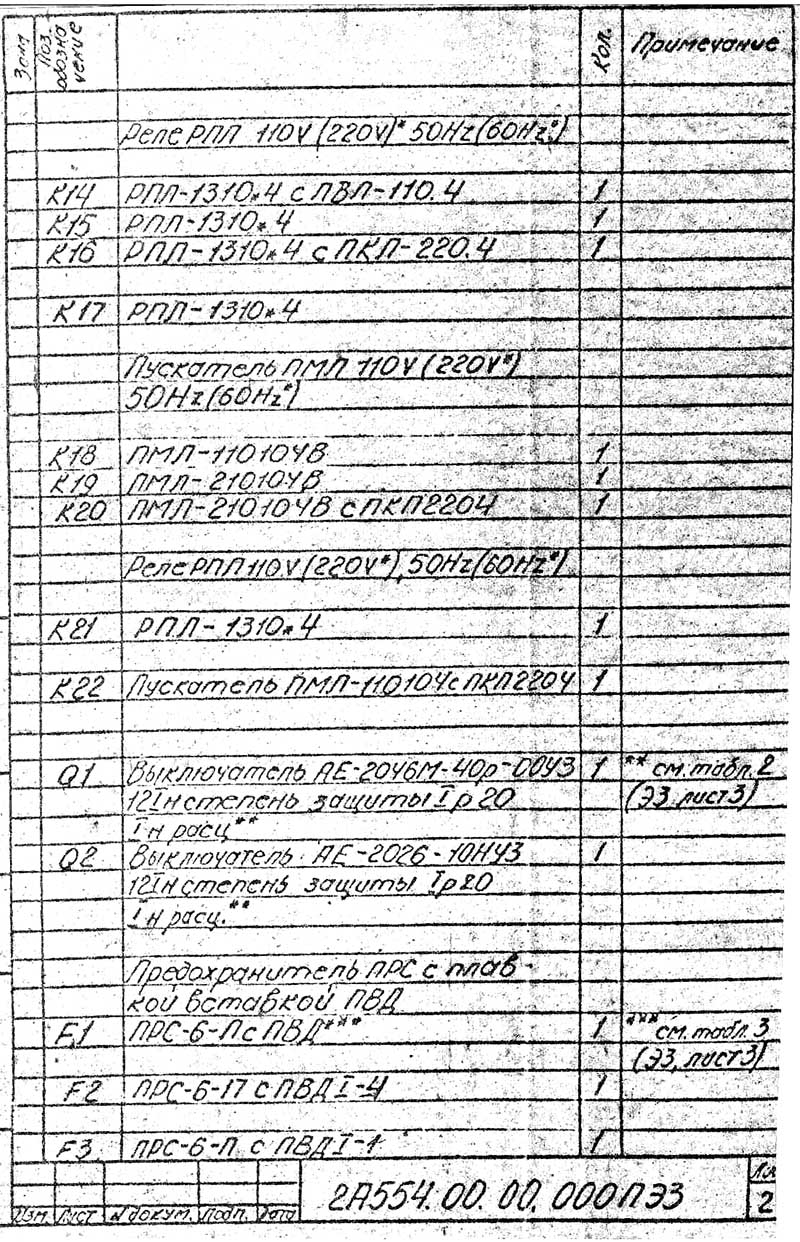 Зона Поз. обозначение Кол. Примечание
Реле РПЛ 110V (220V)* 50Hz (60Hz*)
К14 РПЛ-1310*4 с ПВЛ-110.4 1
К15 РПЛ-1310*4 1
К16 РПЛ-1310*4 с ПКЛ-220.4 1
К17 РПЛ-1310*4
Пускатель ПМЛ 110V (220V*)
50Hz (60Hz*)
К18 ПМЛ-110104В 1
К19 ПМЛ-210104В 1
К20 ПМЛ-210104В с ПКЛ2204 1
Реле РПЛ 110V (220V*), 50Hz (60Hz*)
К21 РПЛ-1310*4 1
К22 Пускатель ПМЛ-110104 с ПКЛ2204 1
Q1 Выключатель АЕ-2046М-40р-00У3 1 ** см. табл. 2
12Iн степень защиты Iр20 (Э3 лист 3)
Iн расц**
Q2 Выключатель АЕ-2026-10НУ3 1
12Iн степень защиты Iр20
Iн расц.**
Предохранитель ПРС с плав-
кой вставкой ПВД
F1 ПРС-6-П с ПВД*** 1 *** см. табл. 3
(Э3, лист 3)
F2 ПРС-6-П с ПВД I-4 1
F3 ПРС-6-П с ПВД I-1 1
2А554.00.00.000ПЭ3 Лист
Изм. Лист N докум. Подп. Дата 2